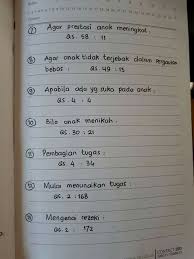 ⑦ Agar prestasi anak meningkat.
QS. 58 : 11
⑧ Agar anak tidak terjebak dalam pergaulan
bebas : QS. 49 : 13
⑨ Apabila ada yg suka pada anak :
QS. 4 : 4
⑩ Bila anak menikah :
QS. 30 : 21
⑪ Pembagian tugas :
QS. 4 : 34
⑫ Mulai menunaikan tugas :
QS. 2 : 168
⑬ Mengenai rezeki :
QS. 2 : 172